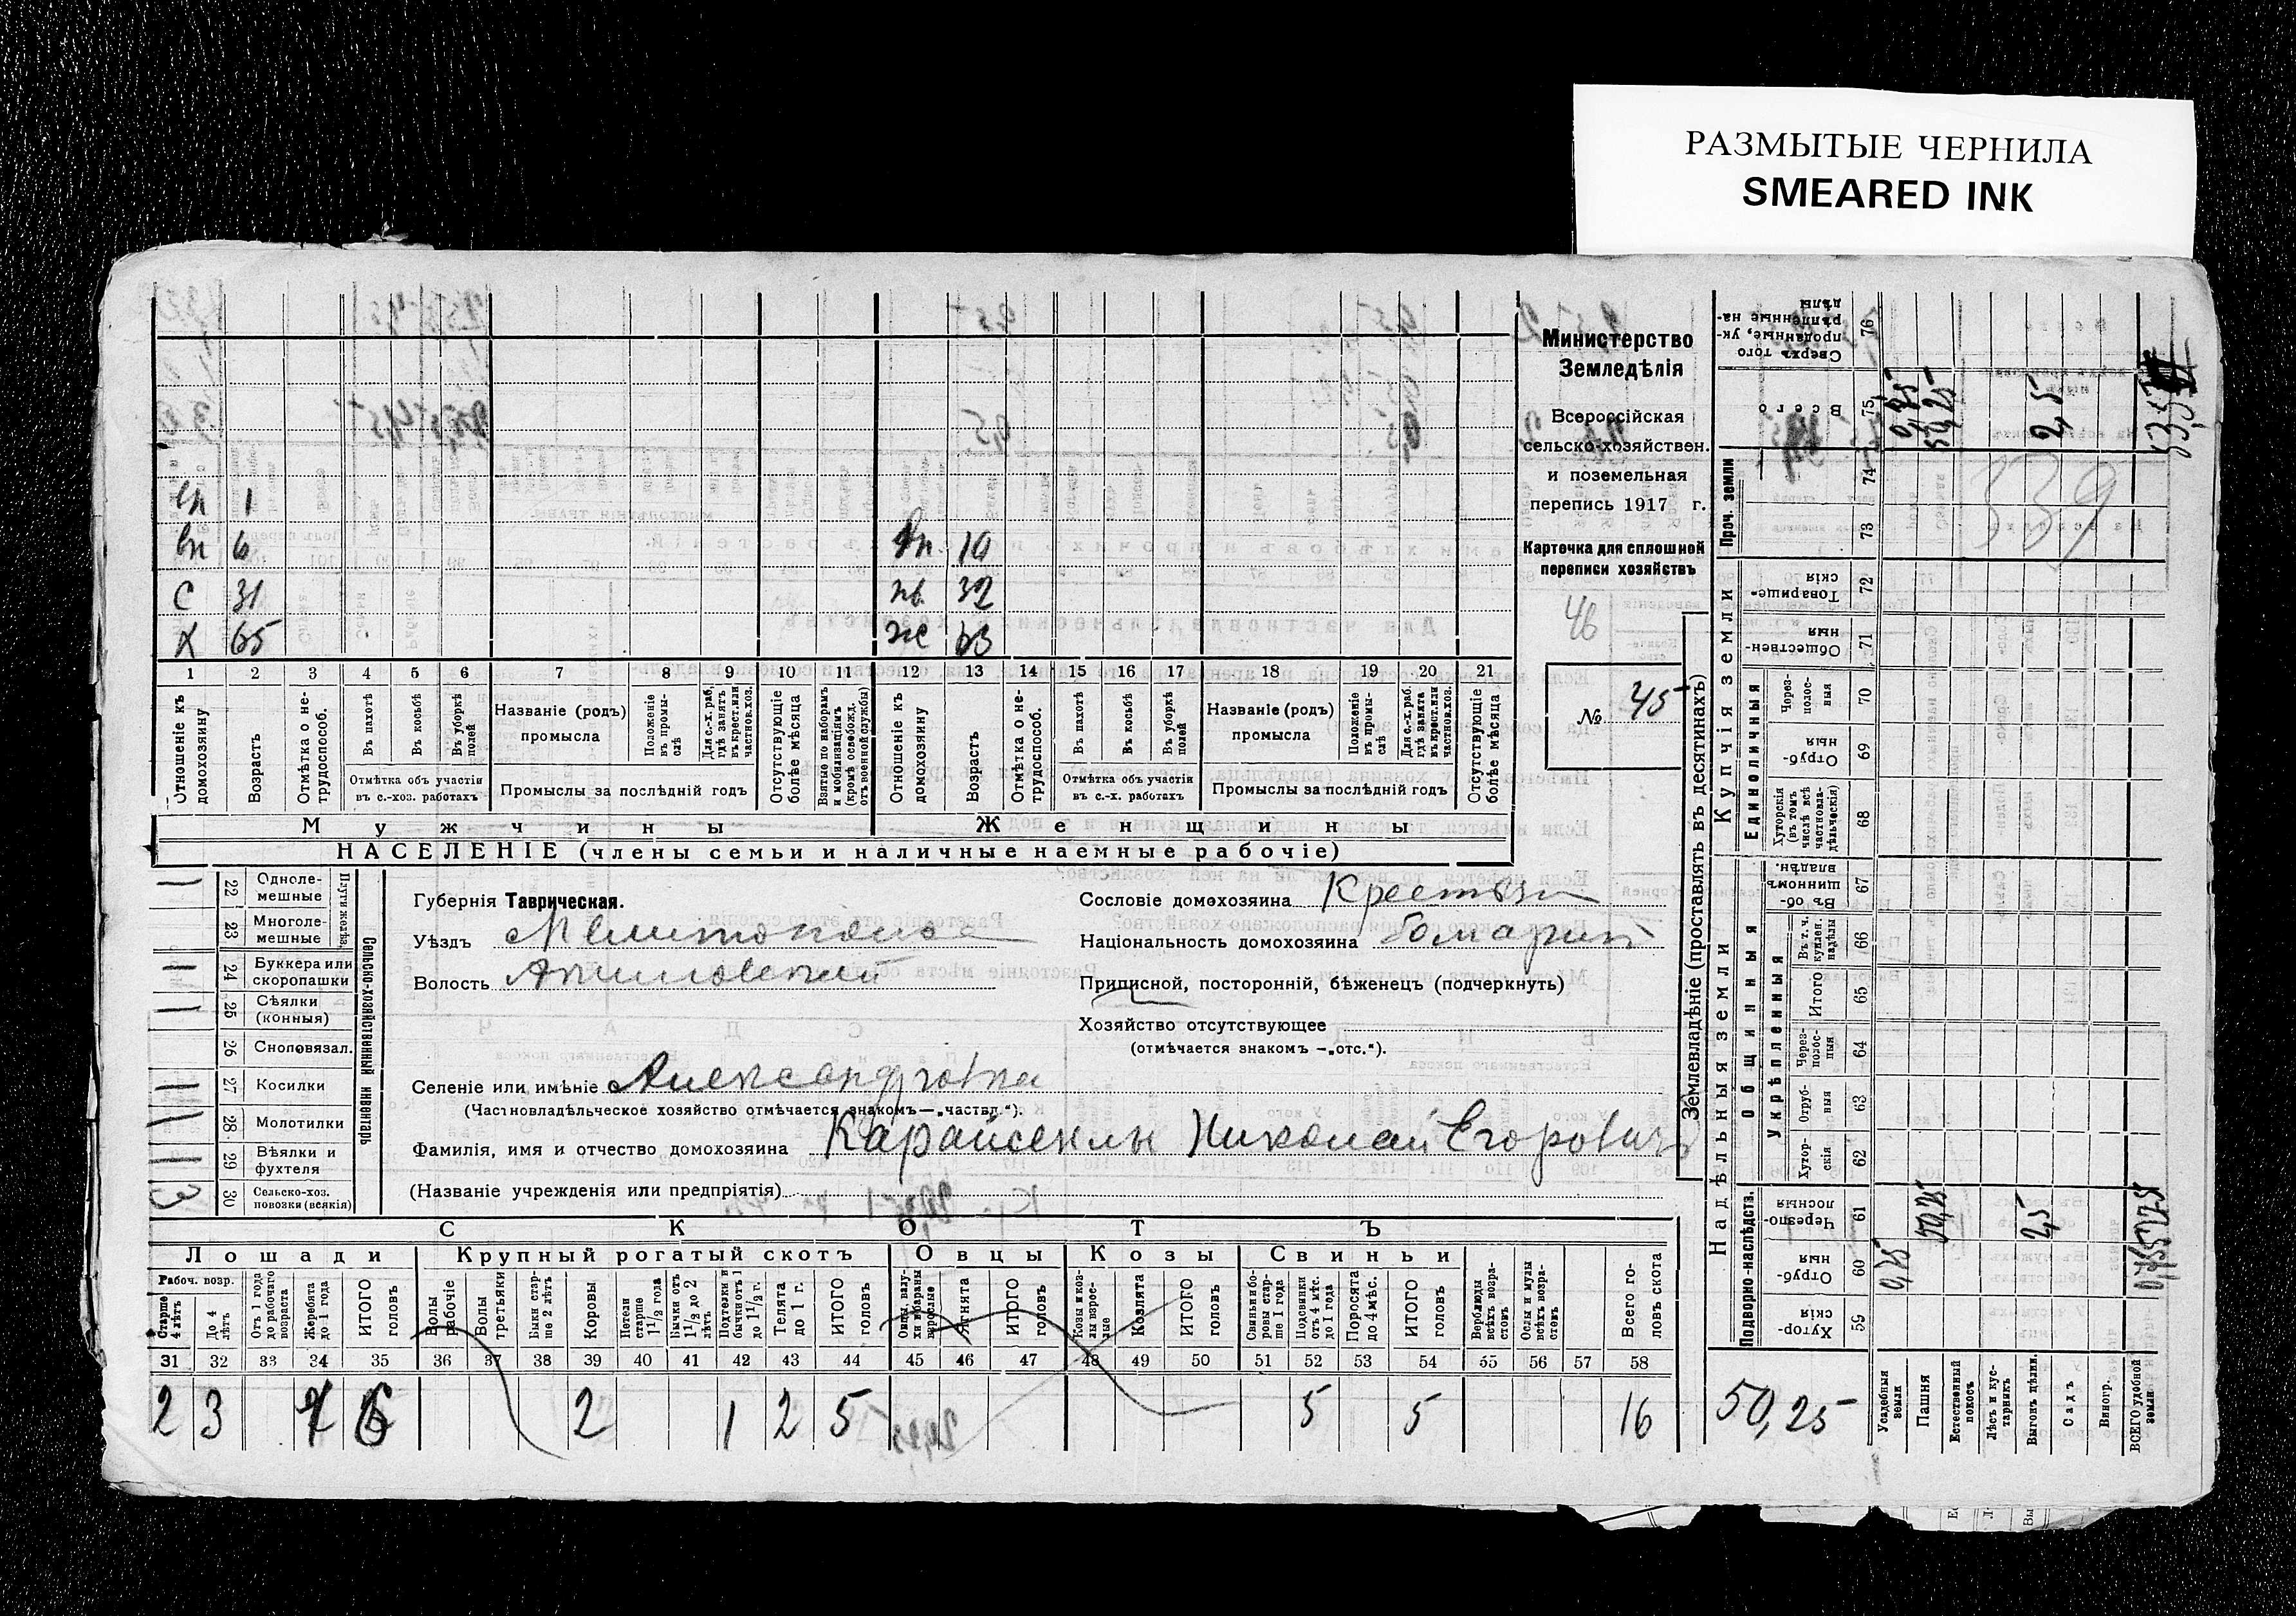 РАЗМЫТЫЕ ЧЕРНИЛА
SMEARED INK
Министерство
Земледѣлія
Всероссійская
сельско-хозяйствен.
и поземельная
перепись 1917 г.
Карточка для сплошной
переписи хозяйствъ
46
№ 45
вп 1
вп 6 вп 10
с 31 нв 32
х 65 же 63
1 2 3 4 5 6 7 8 9 10 11 12 13 14 15 16 17 18 19 20 21
Отношеніе къ домохозяину
Возрастъ
Отмѣтка о не-трудоспособ.
Въ пахотѣ
Въ косьбѣ
Въ уборкѣ полей
Отмѣтка объ участіи въ с.-хоз. работахъ
Названіе (родъ) промысла
Положеніе въ промы-слѣ
Для с.-х. раб. гдѣ занятъ въ крест. или частнов. хоз.
Промыслы за послѣдній годъ
Отсутствующіе болѣе мѣсяца
Взятые по наборамъ и мобилизаціямъ (кромѣ освобожд. отъ военной службы)
Отношеніе къ домохозяину
Возрастъ
Отмѣтка о не-трудоспособ.
Въ пахотѣ
Въ косьбѣ
Въ уборкѣ полей
Отмѣтка объ участіи въ с.-х. работахъ
Названіе (родъ) промысла
Положеніе въ промы-слѣ
Для с.-х. раб. гдѣ занята въ крест. или частнов. хоз.
Промыслы за послѣдній годъ
Отсутствующіе болѣе мѣсяца
Мужчины Женщины
НАСЕЛЕНІЕ (члены семьи и наличные наемные рабочіе)
Сельско-хозяйственный инвентарь
Плуги желѣз.
22 Однолемешные
23 Многолемешные
24 Буккера или скоропашки
25 Сѣялки (конныя)
26 Сноповязал.
27 Косилки
28 Молотилки
29 Вѣялки и фухтеля
30 Сельско-хоз. повозки (всякія) 3
Губернія Таврическая.
Уѣздъ Мелитополь
Волость Акимовской
Сословіе домохозяина Крестьян
Національность домохозяина болгарин
Приписной, посторонній, бѣженецъ (подчеркнуть)
Хозяйство отсутствующее
(отмѣчается знакомъ —„отс.“).
Селеніе или имѣніе Александровка
(Частновладѣльческое хозяйство отмѣчается знакомъ—„частвл.“).
Фамилія, имя и отчество домохозяина Карайсеклы Николай Егоровичъ
(Названіе учрежденія или предпріятія)
СКОТЪ
Лошади Крупный рогатый скотъ Овцы Козы Свиньи
Рабоч. возр.
Старше 4 лѣтъ
До 4 лѣтъ
Отъ 1 года до рабочаго возраста
Жеребята до 1 года
ИТОГО головъ
Волы рабочіе
Волы третьяки
Быки старше 2 лѣтъ
Коровы
Нетели старше 1 1/2 года
Бычки отъ 1 1/2 до 2 лѣтъ
Подтелки и бычки отъ 1 до 1 1/2 г.
Телята до 1 г.
ИТОГО головъ
Овцы, валухи и бараны взрослые
Ягнята
ИТОГО головъ
Козы и козлы взрослые
Козлята
ИТОГО головъ
Свиньи и боровы старше 1 года
Подсвинки отъ 4 мѣс. до 1 года
Поросята до 4 мѣс.
ИТОГО головъ
Верблюды всѣхъ возрастовъ
Ослы и мулы всѣхъ возрастовъ
Всего головъ скота
31 32 33 34 35 36 37 38 39 40 41 42 43 44 45 46 47 48 49 50 51 52 53 54 55 56 57 58
2 3 6 2 1 2 5 5 5 16
Землевладѣніе (проставлять въ десятинахъ)
Надѣльныя земли Купчія земли Проч. земли
Подворно-наслѣдств. Общинныя Единоличныя
Укрѣпленныя
59 Хуторскія
60 Отрубныя
61 Черезполосныя
62 Хуторскія
63 Отрубныя
64 Черезполосныя
65 Итого
66 Въ т. ч. куплен. надѣлы
67 Въ общинномъ владѣн.
68 Хуторскія (въ томъ числѣ всѣ частновладѣльческія)
69 Отрубныя
70 Черезполосныя
71 Общественныя
72 Товарищескія
73
74
75 Всего
76 Сверхъ того проданные, укрѣпленные надѣлы
50,25
Усадебныя земли 0,75 0,75
Пашня 50,25 50,25
Естественный покосъ
Лѣсъ и кустарникъ
Выгонъ цѣлин. 2,5 2,5
Садъ
Виногр.
ВСЕГО удобной земли
339